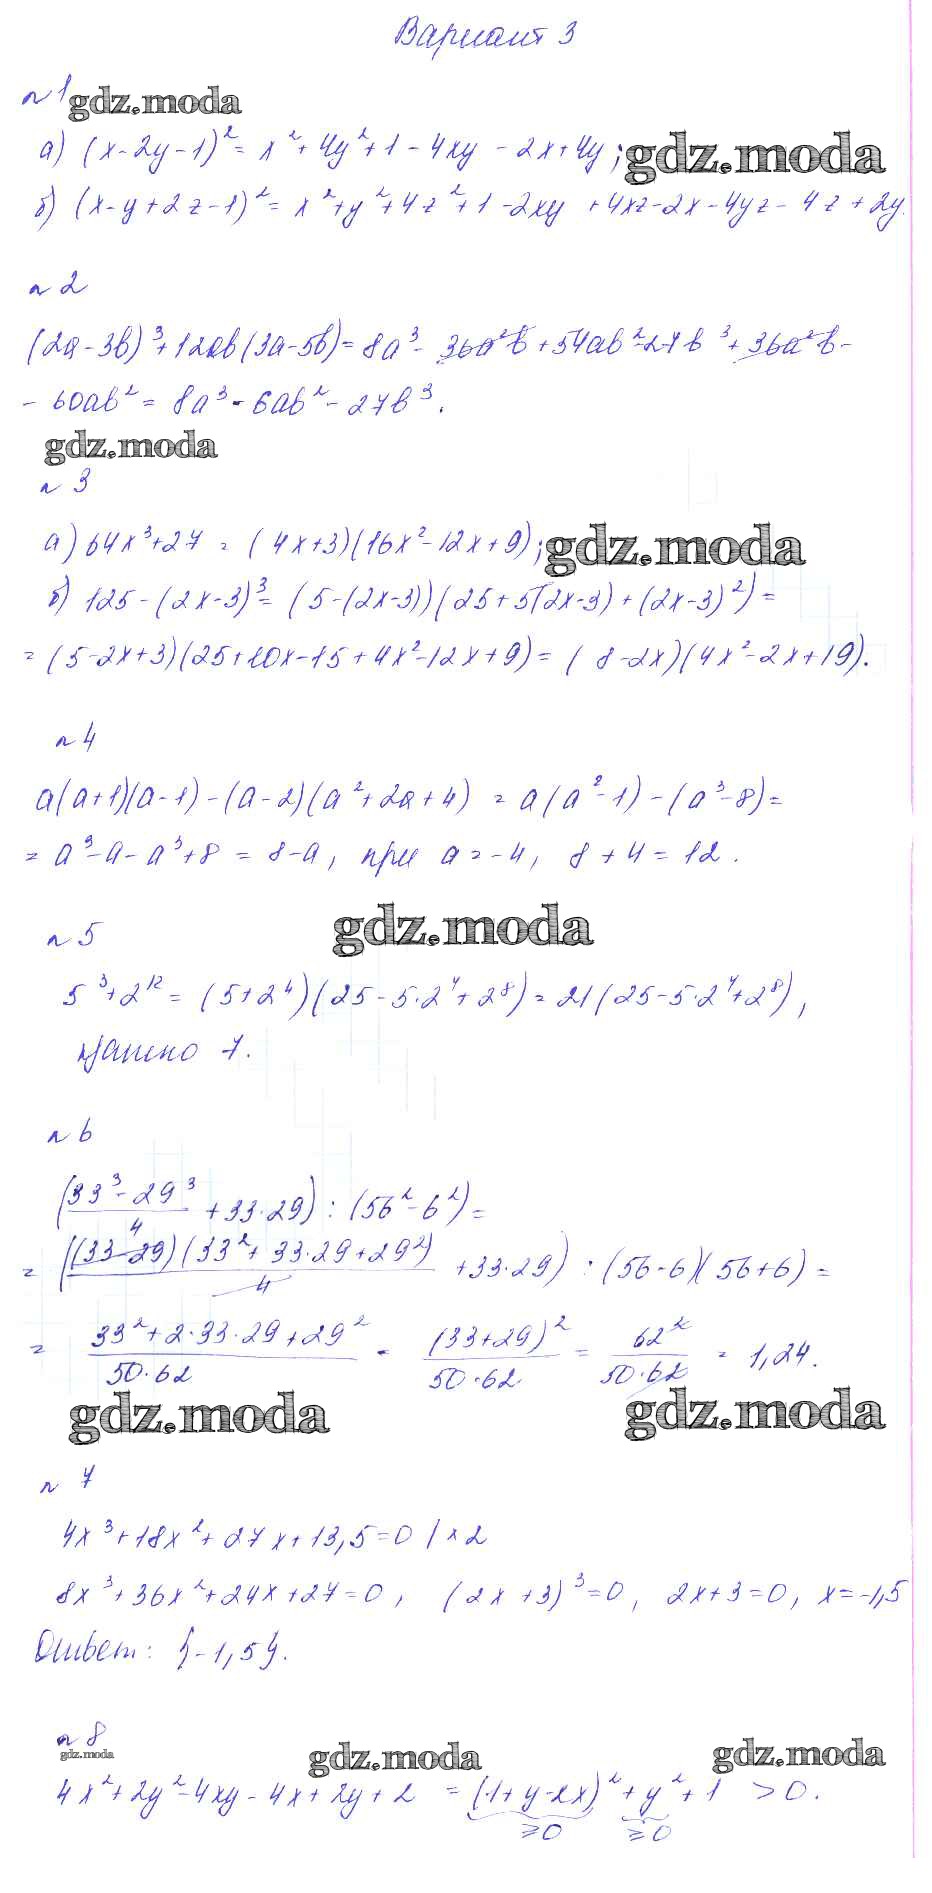 Вариант 3
n 1
gdz.moda
а) (x-2y-1)² = x²+4y²+1-4xy-2x+4y; gdz.moda
б) (x-y+2z-1)² = x²+y²+4z²+1-2xy+4xz-2x-4yz-4z+2y.
n 2
(2a-3b)³+12ab(3a-5b)=8a³-36a²b+54ab²-27b³+36a²b-
-60ab²=8a³-6ab²-27b³.
gdz.moda
n 3
а) 64x³+27 = (4x+3)(16x²-12x+9); gdz.moda
б) 125-(2x-3)³=(5-(2x-3))(25+5(2x-3)+(2x-3)²)=
=(5-2x+3)(25+10x-15+4x²-12x+9)=(8-2x)(4x²-2x+19).
n 4
a(a+1)(a-1)-(a-2)(a²+2a+4) = a(a²-1)-(a³-8)=
=a³-a-a³+8 = 8-a, при a=-4, 8+4=12.
gdz.moda
n 5
5³+2¹²=(5+2⁴)(25-5·2⁴+2⁸)=21(25-5·2⁴+2⁸),
кратно 7.
n 6
((33³-29³)/4 + 33·29) : (56²-6²)=
= ((33-29)(33²+33·29+29²)/4 + 33·29) : (56-6)(56+6) =
= (33²+2·33·29+29²)/(50·62) = (33+29)²/(50·62) = 62²/(50·62) = 1,24.
gdz.moda gdz.moda
n 7
4x³+18x²+27x+13,5=0 /×2
8x³+36x²+24x+27=0, (2x+3)³=0, 2x+3=0, x=-1,5
Ответ: {-1,5}.
n 8
gdz.moda gdz.moda gdz.moda
4x²+2y²-4xy-4x+2y+2 =(1+y-2x)²+y²+1 >0.
≥0 ≥0